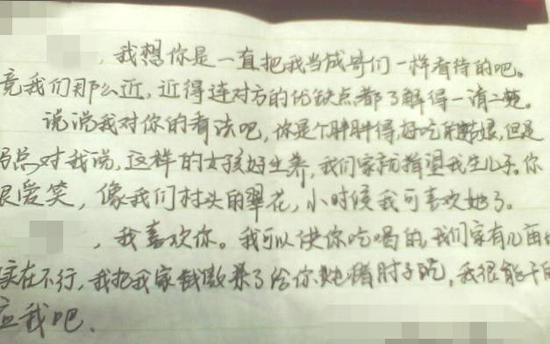 ，我想你是一直把我当成哥们一样看待的吧。
竟我们那么近，近得连对方的优缺点都了解得一清二楚
说说我对你的看法吧，你是个胖胖得好吃的姑娘，但是
妈总对我说，这样的女孩好生养，我们家就指望我生儿子。你
很爱笑，像我们村头的翠花，小时候我可喜欢她了。
，我喜欢你。我可以供你吃喝的，我们家有几亩
实在不行，我把我家 了给你炖猪肘子吃，我很能干
应我吧。